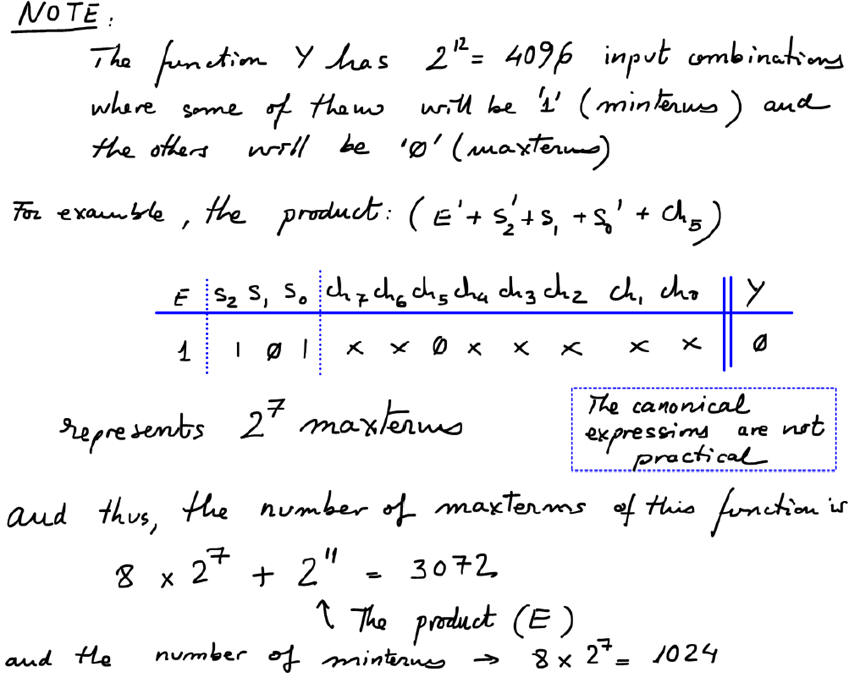 NOTE:
The function Y has 2¹² = 4096 input combinations
where some of them will be '1' (minterms) and
the others will be '0' (maxterms)
For example, the product: (E' + S₂' + S₁ + S₀' + ch₅)
E S₂ S₁ S₀ ch₇ ch₆ ch₅ ch₄ ch₃ ch₂ ch₁ ch₀ Y
1 1 0 1 x x 0 x x x x x 0
represents 2⁷ maxterms
The canonical
expressions are not
practical
and thus, the number of maxterms of this function is
8 x 2⁷ + 2¹¹ = 3072
↑ The product (E)
and the number of minterms → 8 x 2⁷ = 1024